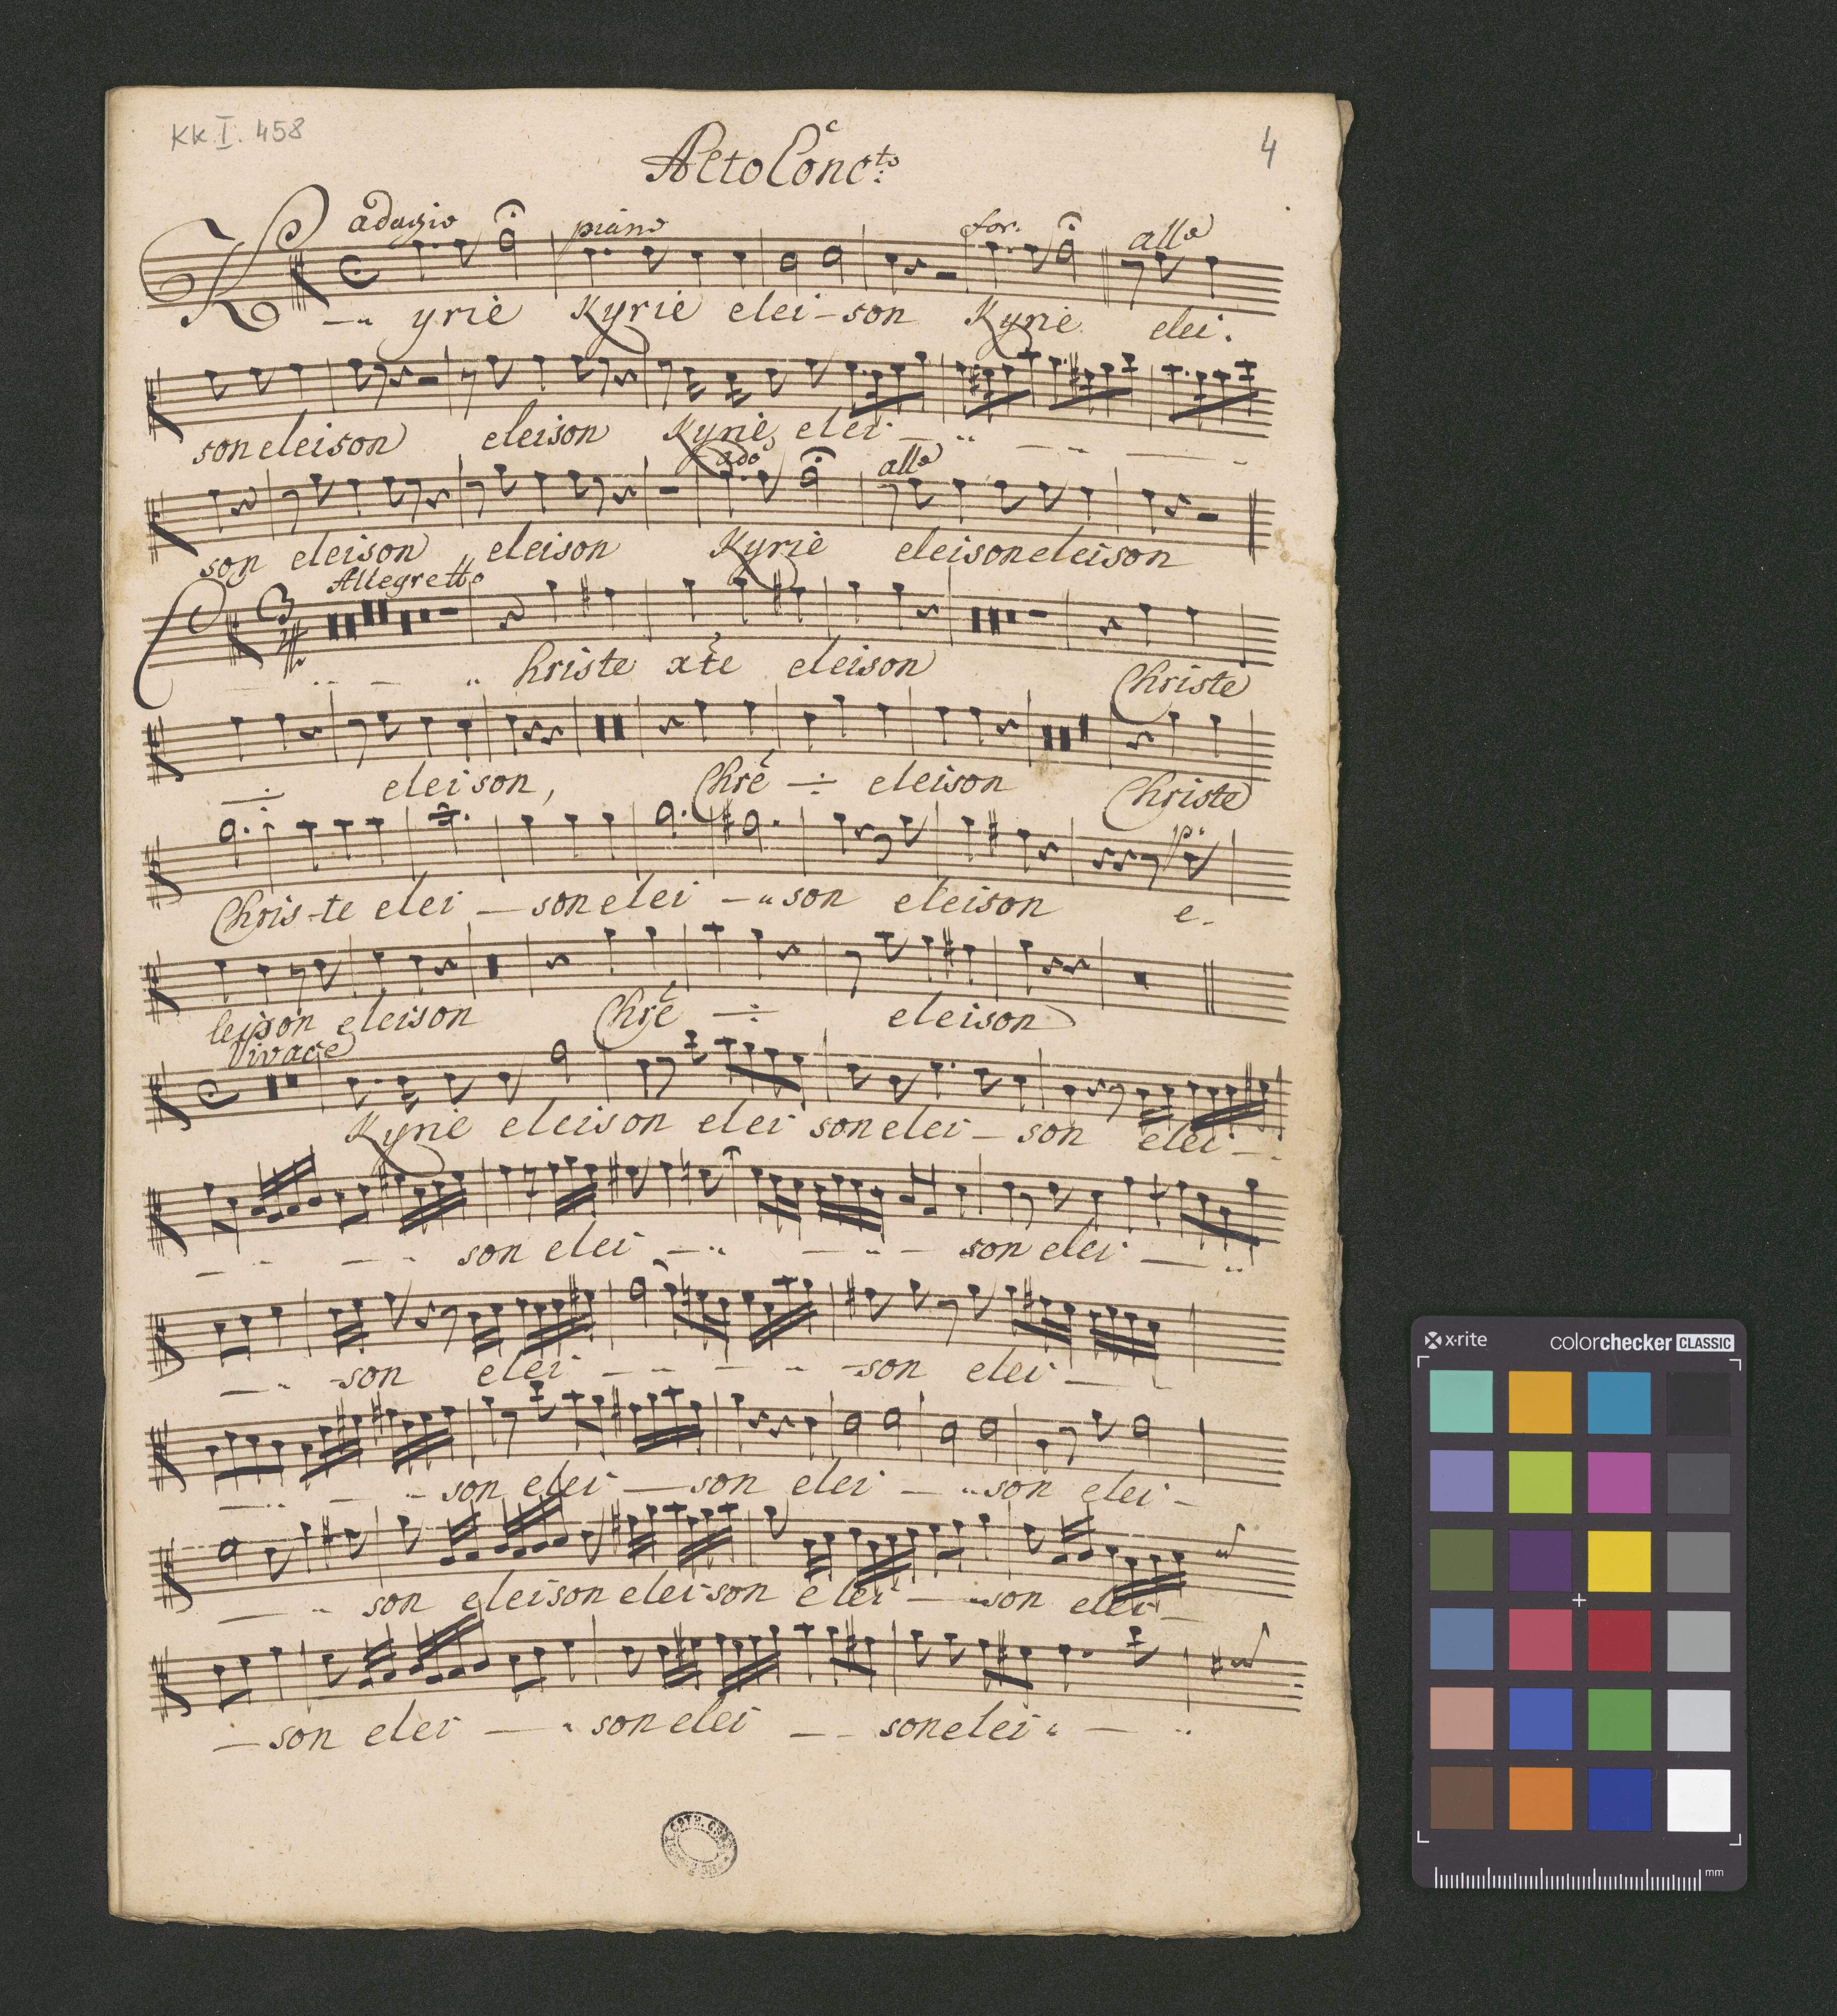 KK I. 458
4
Alto Conc:to
adagio piano for. allo
Kyrie Kyrie elei-son Kyrie elei.
son eleison eleison Kyrie elei
ado allo
son eleison eleison Kyrie eleison eleison
Allegretto
Christe xte eleison Christe
eleison, Chre eleison Christe
p:
Chris-te elei - son elei - son eleison e-
leison eleison Chre eleison
Vivace
Kyrie eleison elei son elei - son elei -
son elei - son elei -
- son elei - son elei -
son elei - son elei - son elei -
son eleison elei-son elei - son elei -
- son elei - son elei - son elei -
x-rite colorchecker CLASSIC
mm